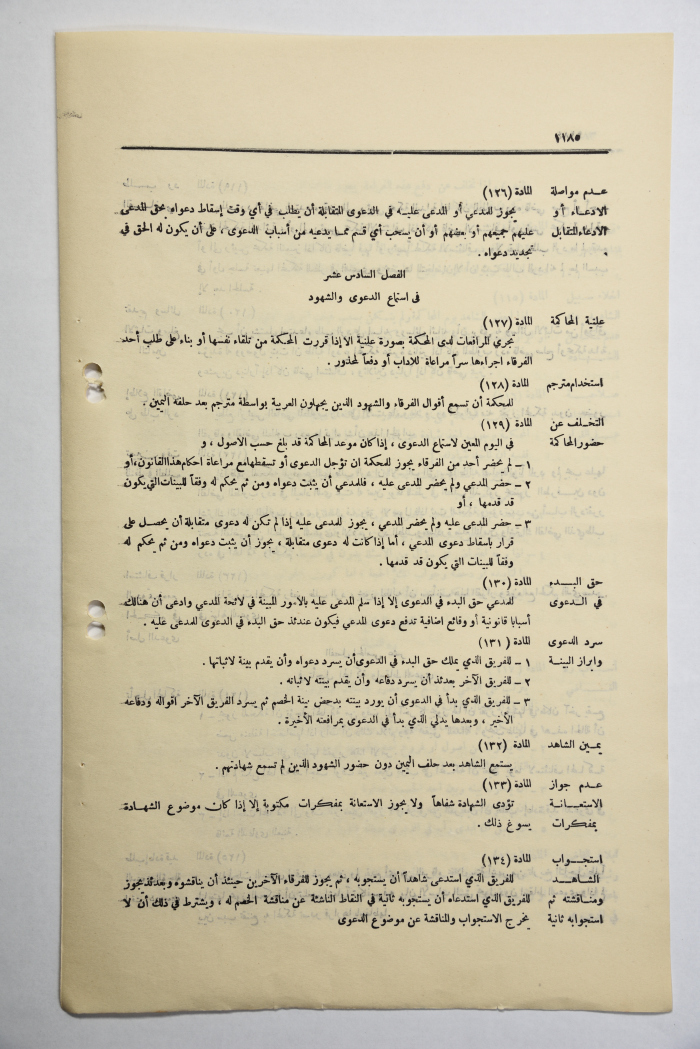 ١١٨٥
عـدم مواصلة المادة (١٢٦)
الادعـاء أو يجوز للمدعي أو المدعى عليـه في الدعوى المتقابلة أن يطلب في أي وقت إسقاط دعواه بحق المدعى
الادعاء المتقابل عليهم جميعهم أو بعضهم أو أن يسحب أي قسم ممـا يدعيه من أسباب الدعوى ، على أن يكون له الحق في
تجديد دعواه .
الفصل السادس عشر
في استماع الدعوى والشهود
علنية المحاكمة المادة (١٢٧)
تجري المرافعات لدى المحكمة بصورة علنية الا إذا قررت المحكمة من تلقاء نفسها أو بناء على طلب أحد
الفرقاء اجراءها سراً مراعاة للاداب أو دفعاً لمحذور .
استخدام مترجم المادة (١٢٨)
للمحكمة أن تسمع أقوال الفرقاء والشهود الذين يجهلون العربية بواسطة مترجم بعد حلفه اليمين .
التخـلف عن المادة (١٢٩)
حضور المحاكمة في اليوم المعين لاستماع الدعوى ، إذا كان موعد المحاكمة قد بلغ حسب الاصول ، و
١ – لم يحضر أحد من الفرقاء يجوز للمحكمة ان تؤجل الدعوى أو تسقطها مع مراعاة احكام هذا القانون، أو
٢ – حضر المدعي ولم يحضر المدعى عليه ، فللمدعي أن يثبت دعواه ومن ثم يحكم له وفقاً للبينات التي يكون
قد قدمها ، أو
٣ – حضر المدعى عليه ولم يحضر المدعي ، يجوز للمدعى عليه إذا لم تكن له دعوى متقابلة أن يحصـل على
قرار بإسقاط دعوى المدعي ، أما إذا كانت له دعوى متقابلة ، يجوز أن يثبت دعواه ومن ثم يحكم له
وفقاً للبينات التي يكون قد قدمها .
حق البـــدء المادة (١٣٠)
في الـدعوى للمدعي حق البدء في الدعوى إلا إذا سلم المدعى عليه بالامور المبينة في لائحة المدعي وادعى أن هنالك
أسبابا قانونية أو وقائع اضافية تدفع دعوى المدعي فيكون عندئذ حق البدء في الدعوى للمدعى عليه .
سرد الدعوى المادة (١٣١)
وابراز البينـة ١ – للفريق الذي يملك حق البدء في الدعوى أن يسرد دعواه وأن يقدم بينة لاثباتها .
٢ – للفريق الآخر بعدئذ أن يسرد دفاعه وأن يقدم بينته لاثباته .
٣ – للفريق الذي بدأ في الدعوى أن يورد بينته بدحض بينة الخصم ثم يسرد الفريق الآخر اقواله ودفاعه
الأخير ، وبعدها يدلي الذي بدأ في الدعوى بمرافعته الأخيرة .
يمـين الشاهد المادة (١٣٢)
يستمع الشاهد بعد حلف اليمين دون حضور الشهود الذين لم تسمع شهادتهم .
عـدم جواز المادة (١٣٣)
الاستعـانـة تؤدى الشهادة شفاهاً ولا يجوز الاستعانة بمفكرات مكتوبة إلا إذا كان موضوع الشهـادة
بمفكرات يسوغ ذلك .
استجـواب المادة (١٣٤)
الشاهـد للفريق الذي استدعى شاهداً أن يستجوبه ، ثم يجوز للفرقاء الآخرين حينئذ أن يناقشوه وبعدئذ يجوز
ومناقشته ثم للفريق الذي استدعاه أن يستجوبه ثانية في النقاط الناشئة عن مناقشة الخصم له ، ويشترط في ذلك أن لا
استجوابه ثانية يخرج الاستجواب والمناقشة عن موضوع الدعوى